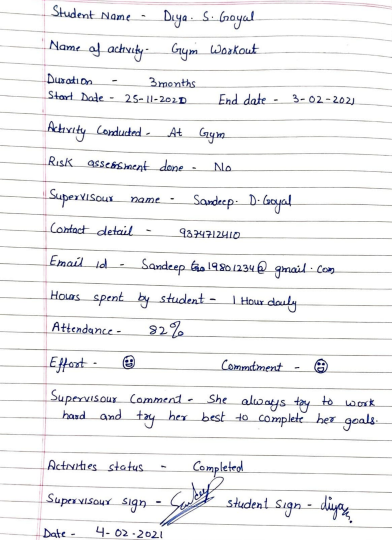 Student Name - Diya. S. Goyal
Name of activity - Gym Workout
Duration - 3months
Start Date - 25-11-2020 End date - 3-02-2021
Activity Conducted - At Gym
Risk assessment done - No
Supervisour name - Sandeep. D. Goyal
Contact detail - 9374712410
Email id - Sandeep 19801234@gmail.com
Hours spent by student - 1 Hour daily
Attendance - 82%
Effort - ☺ Commitment - ☺
Supervisour Comment - She always try to work
hard and try her best to complete her goals.
Activities status - Completed
Supervisour sign - student Sign - diya
Date - 4-02-2021